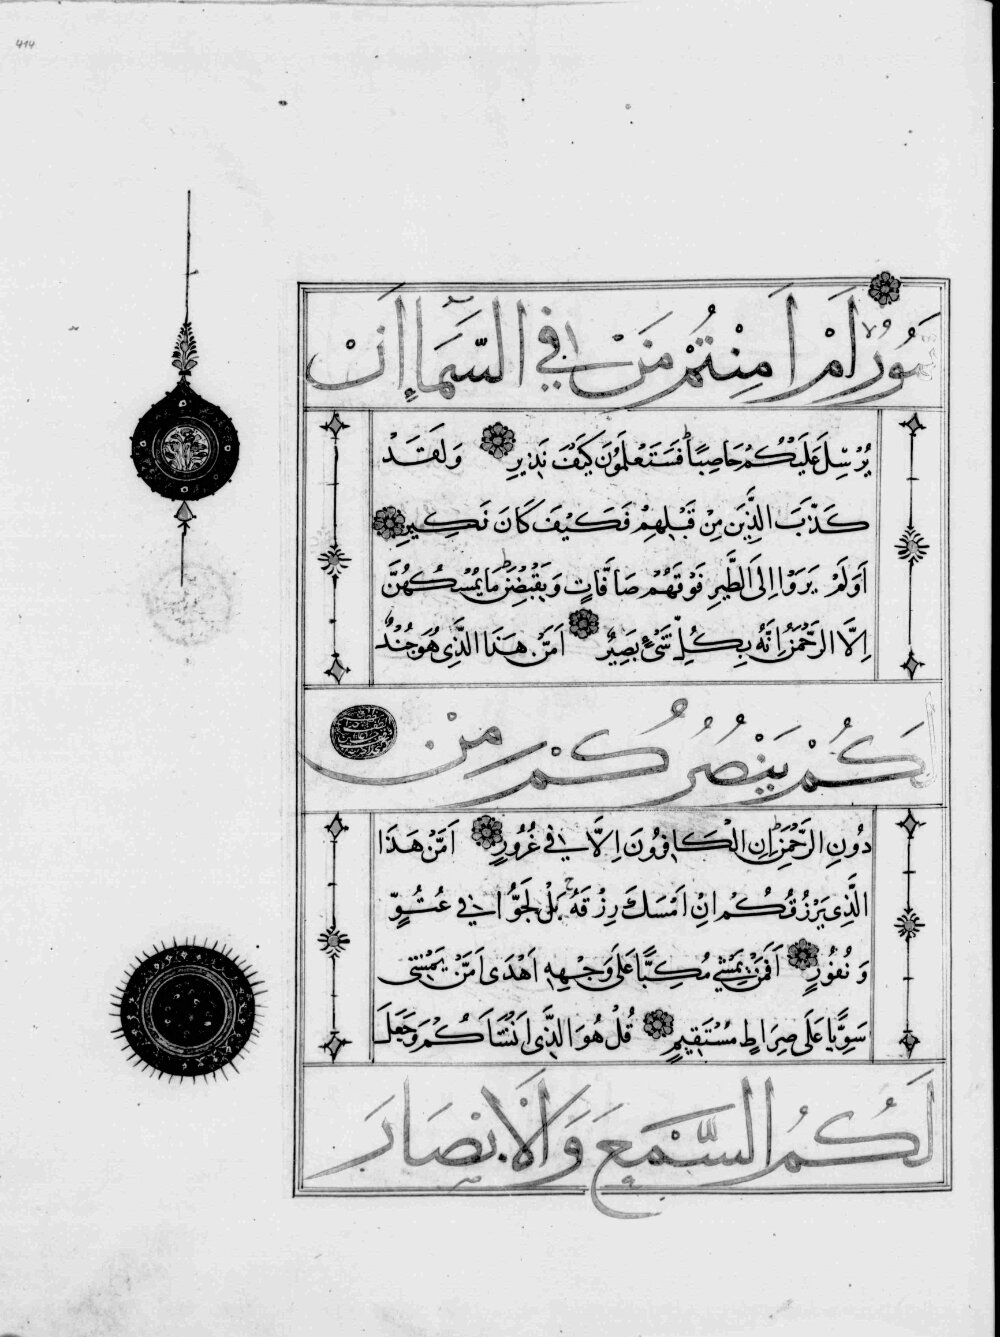 414
تَمُورُ اَمْ اَمِنْتُمْ مَنْ فِي السَّمَآءِ اَنْ
يُرْسِلَ عَلَيْكُمْ حَاصِبًا فَسَتَعْلَمُونَ كَيْفَ نَذِيرِ وَلَقَدْ
كَذَّبَ الَّذِينَ مِنْ قَبْلِهِمْ فَكَيْفَ كَانَ نَكِيرِ
اَوَلَمْ يَرَوْا اِلَى الطَّيْرِ فَوْقَهُمْ صَافَّاتٍ وَيَقْبِضْنَ مَا يُمْسِكُهُنَّ
اِلَّا الرَّحْمٰنُ اِنَّهُ بِكُلِّ شَيْءٍ بَصِيرٌ اَمَّنْ هٰذَا الَّذِى هُوَ جُنْدٌ
لَكُمْ يَنْصُرُكُمْ مِنْ
دُونِ الرَّحْمٰنِ اِنِ الْكَافِرُونَ اِلَّا فِي غُرُورٍ اَمَّنْ هٰذَا
الَّذِى يَرْزُقُكُمْ اِنْ اَمْسَكَ رِزْقَهُ بَلْ لَجُّوا فِي عُتُوٍّ
وَنُفُورٍ اَفَمَنْ يَمْشِي مُكِبًّا عَلَى وَجْهِهِ اَهْدَى اَمَّنْ يَمْشِي
سَوِيًّا عَلَى صِرَاطٍ مُسْتَقِيمٍ قُلْ هُوَ الَّذِى اَنْشَاَكُمْ وَجَعَلَ
لَكُمُ السَّمْعَ وَالْاَبْصَارَ